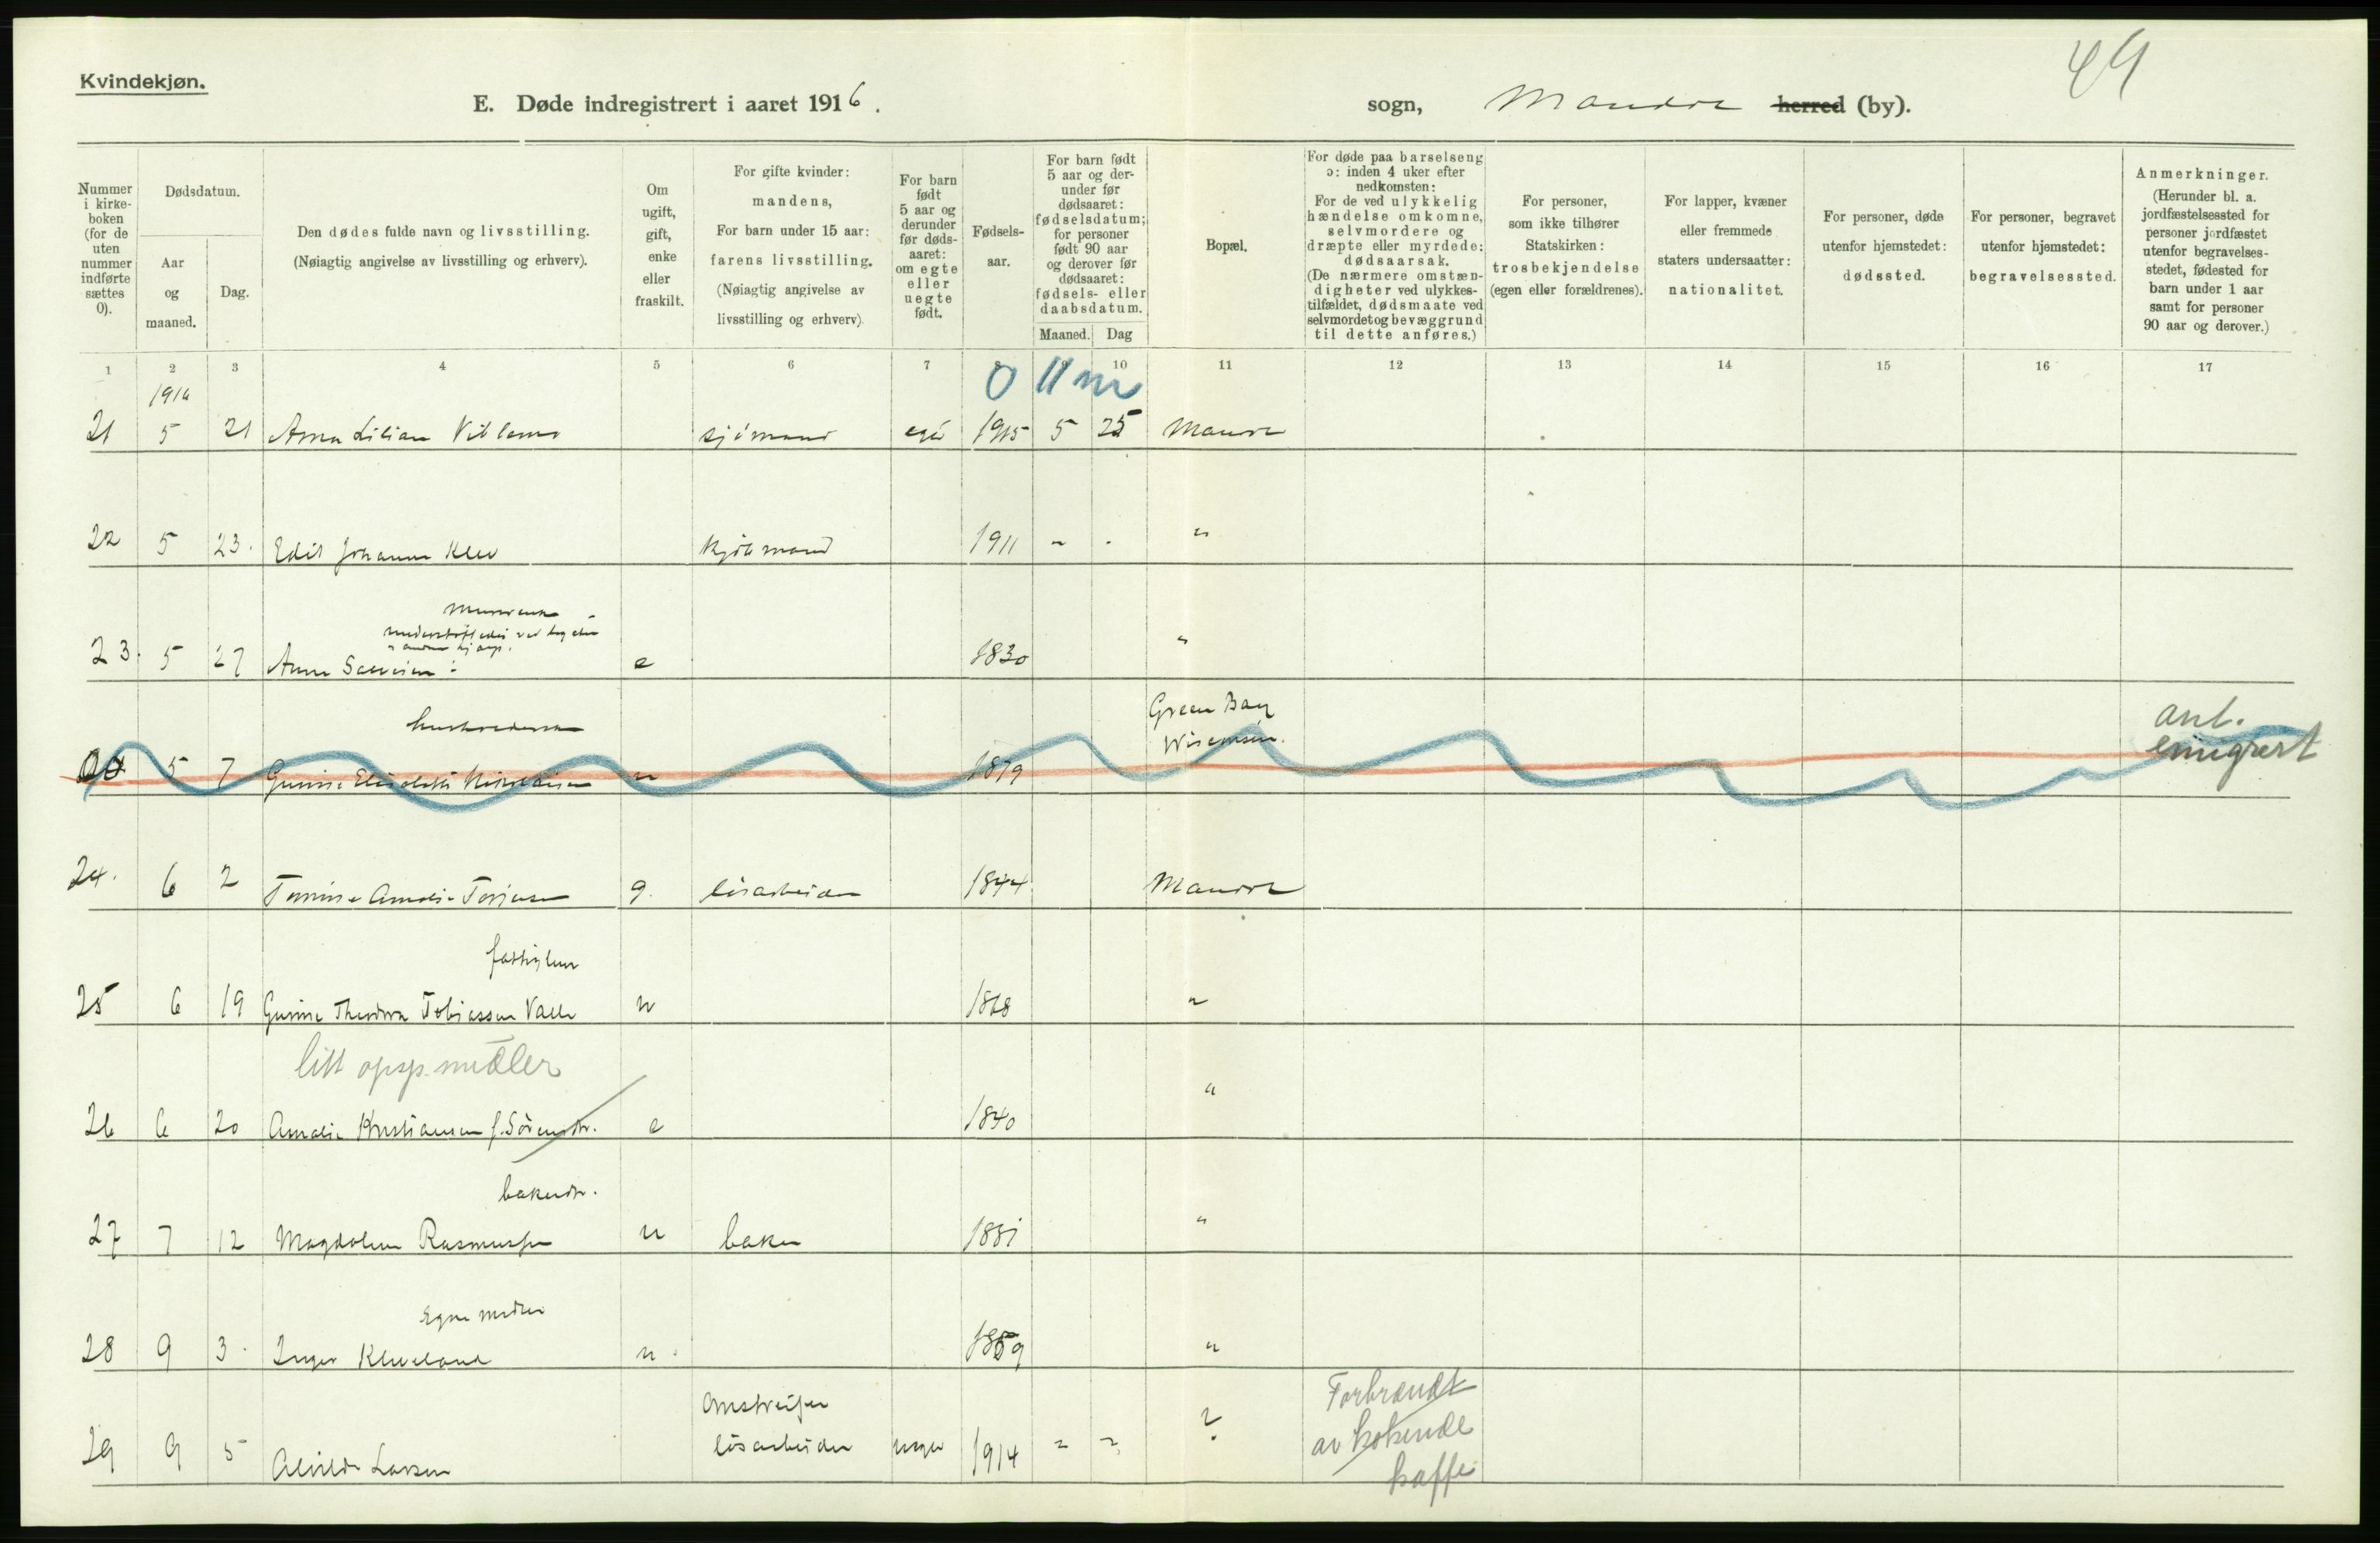 49
Kvindekjøn.
E. Døde indregistrert i aaret 1916.
sogn, Mandal herred (by).
Nummer i kirkeboken (for de uten nummer indførte sættes 0).
Dødsdatum.
Aar og maaned.
Dag.
Den dødes fulde navn og livsstilling.
(Nøiagtig angivelse av livsstilling og erhverv).
Om ugift, gift, enke eller fraskilt.
For gifte kvinder: mandens,
For barn under 15 aar: farens livsstilling.
(Nøiagtig angivelse av livsstilling og erhverv).
For barn født 5 aar og derunder før dødsaaret: om egte eller uegte født.
Fødselsaar.
For barn født 5 aar og derunder før dødsaaret: fødselsdatum; for personer født 90 aar og derover før dødsaaret: fødsels- eller daabsdatum.
Maaned. Dag
Bopæl.
For døde paa barselseng ɔ: inden 4 uker efter nedkomsten:
For de ved ulykkelig hændelse omkomne, selvmordere og dræpte eller myrdede: dødsaarsak.
(De nærmere omstændigheter ved ulykkestilfældet, dødsmaate ved selvmordet og bevæggrund til dette anføres.)
For personer, som ikke tilhører Statskirken: trosbekjendelse (egen eller forældrenes).
For lapper, kvæner eller fremmede staters undersaatter: nationalitet.
For personer, døde utenfor hjemstedet: dødssted.
For personer, begravet utenfor hjemstedet: begravelsessted.
Anmerkninger.
(Herunder bl. a. jordfæstelsessted for personer jordfæstet utenfor begravelsesstedet, fødested for barn under 1 aar samt for personer 90 aar og derover.)
1 2 3 4 5 6 7 8 9 10 11 12 13 14 15 16 17
1916
0 11 m
21 5 21 Anna Lilian sjømand egte 1915 5 25 Mandal
22 5 23. Edit Johanne Klev kjøbmand 1911 - - "
23. 5 27 Anne e 1830 "
Green Bay
Wisconsin.
ant.
emigrert
5 7 Gunine Elisabeth Nikolaisen u 1879
24. 6 2 Tomine Amalie Torjusen g. løsarbeider 1844 Mandal
fattiglem
25 6 19 Gunine Theodora Tobiassen Valle u 1868 "
litt opsp. midler
26 6 20 Amalie Kristiansen f. Sørensdr. e 1840 "
bakerdr.
27 7 12 Magdalene Rasmussen u baker 1851 "
Egne midler
28 9 3. Inger Kleveland u. 1859 "
29 9 5 Alvilde Larsen
Omstreifer
løsarbeider uegte 1914 - - ?
Forbrændt
av kokende
kaffe